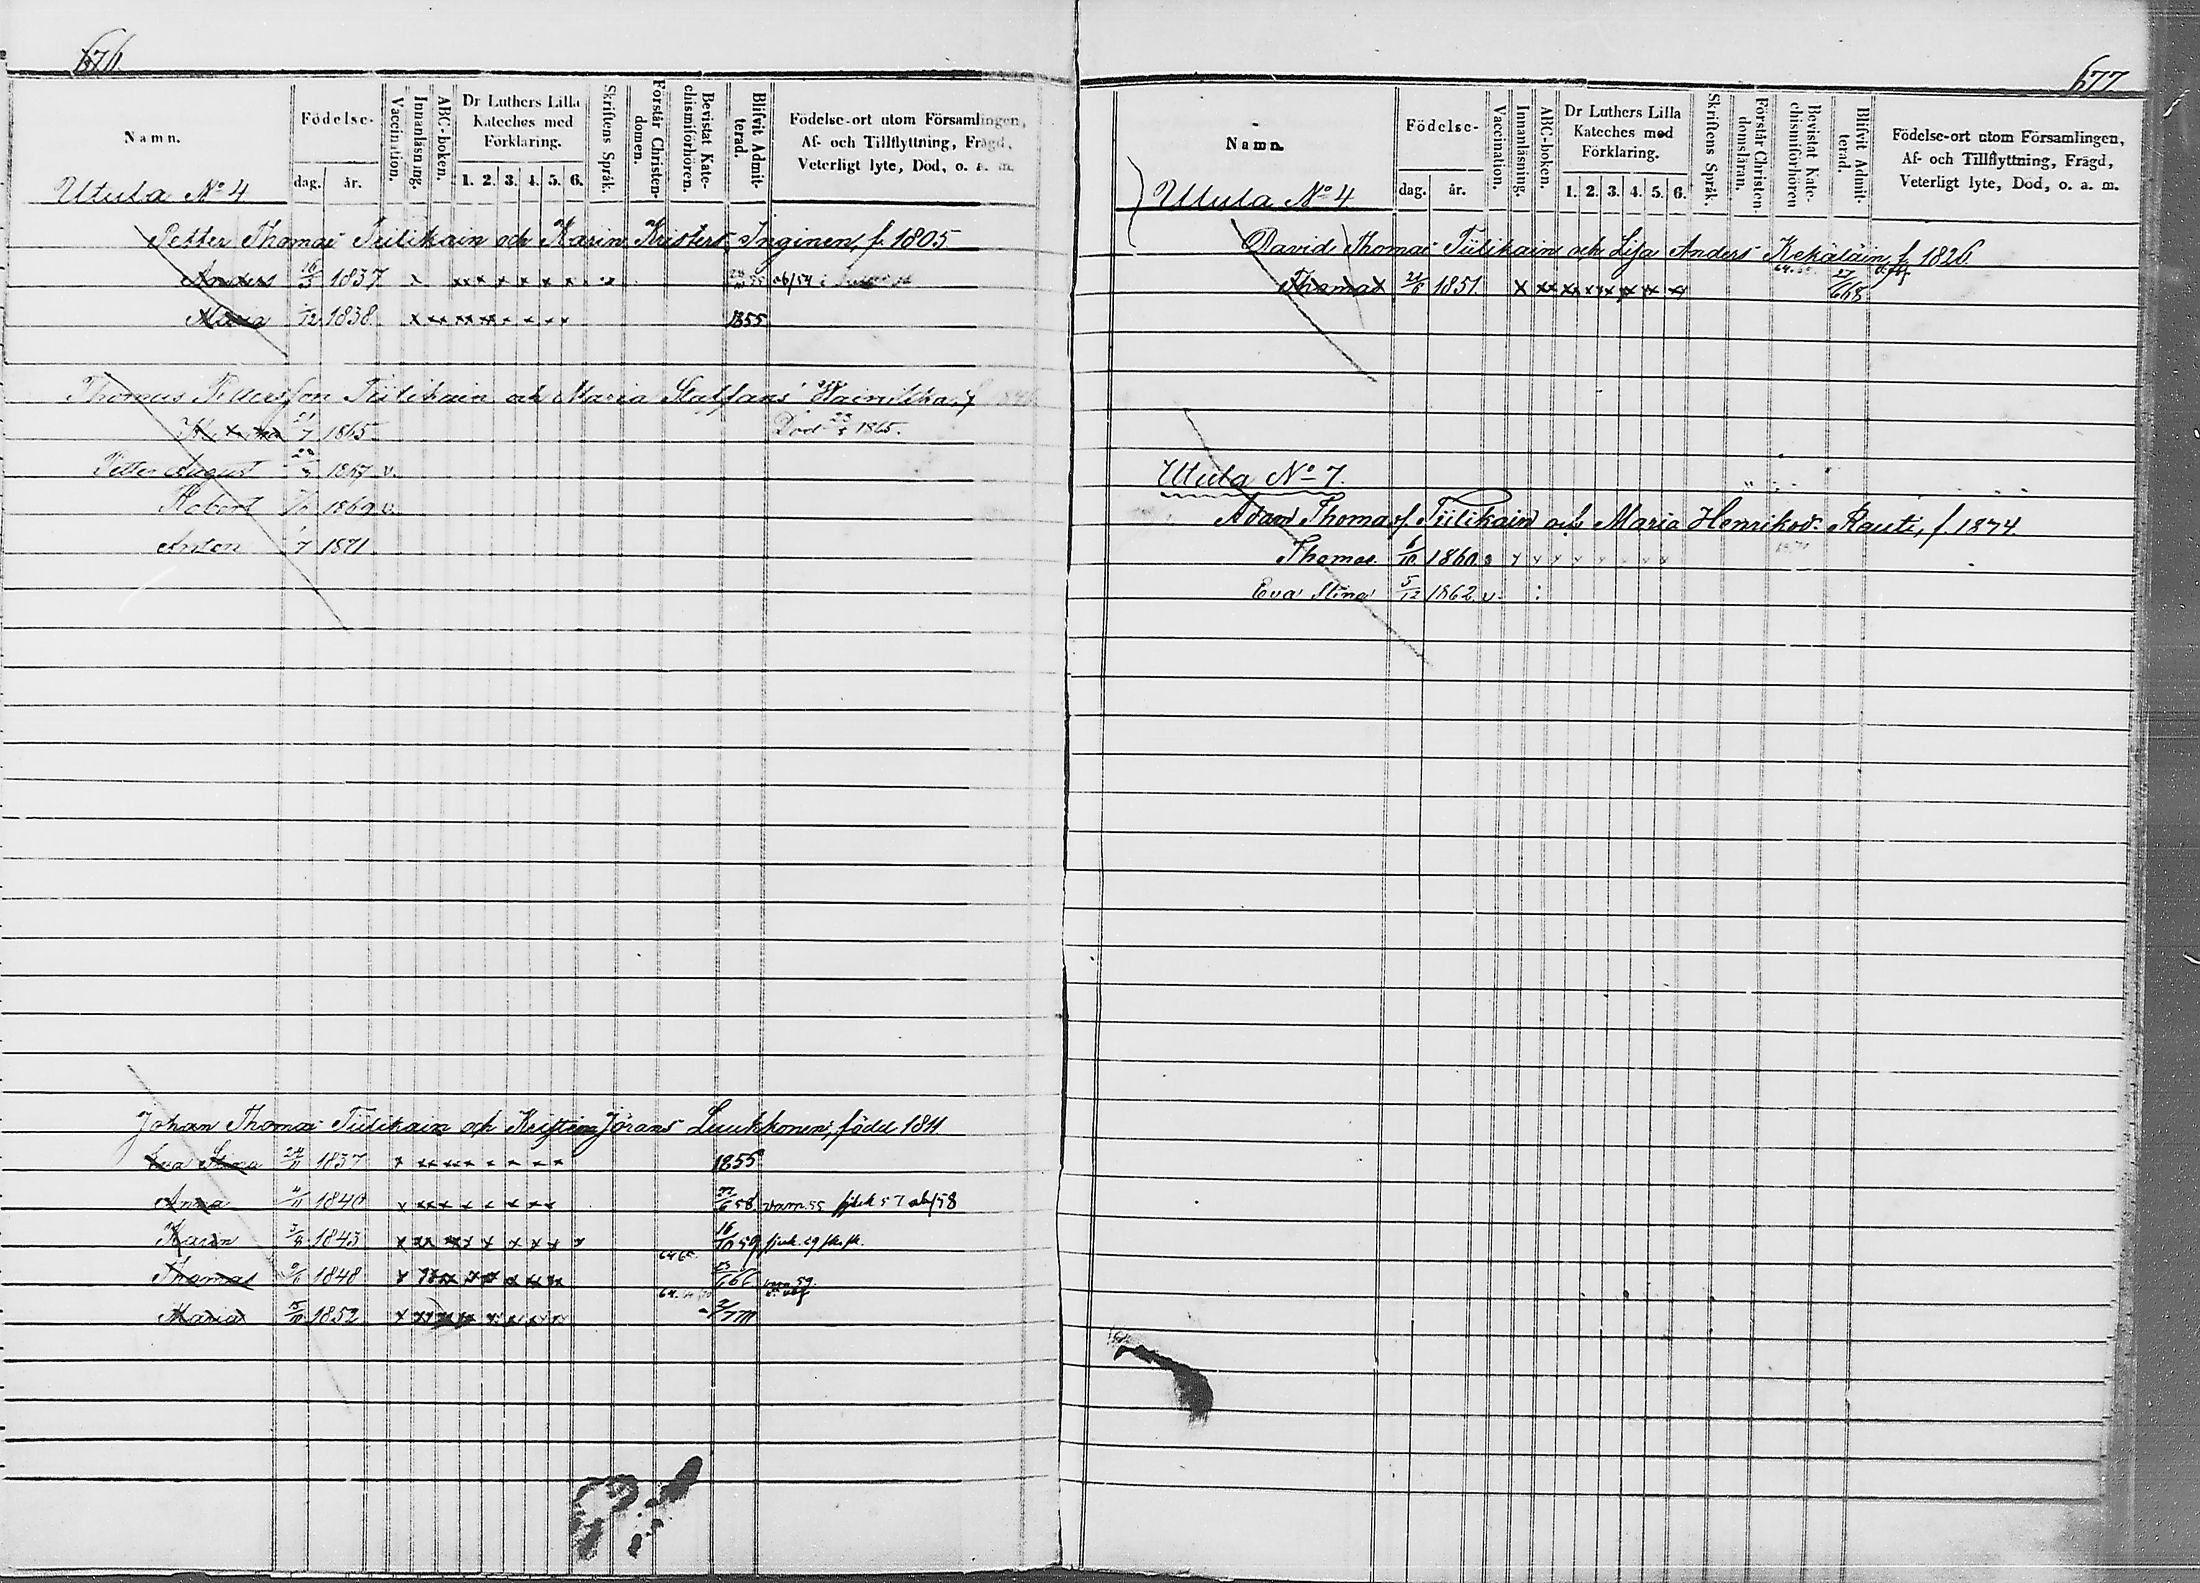 676.
Namn.
Födelse-
dag. år.
Vaccination.
Innanläsning.
ABC-boken.
Dr Luthers Lilla
Kateches med
Förklaring.
1. 2. 3. 4. 5. 6.
Skriftens Språk.
Förstår Christen-
domen.
Bevistat Kate-
chismiförhören.
Blifvit Admit-
terad.
Födelse-ort utom Församlingen,
Af- och Tillflyttning, Frägd,
Veterligt lyte, Död, o. a. m.
Utula No 4
Petter Thomas Tiilikain och Karin Kristers Inginen, f. 1805
Anders 16/3 1837
Maria /12 1838 1855
Thomas Pettersson Tiilikain och Maria Staffans
21/7 1865 Död 1865.
Petter August 1867 v.
Robert 1869 v.
Anton 1/7 1871
Johan Thomas Tiilikain och Kristina Jörans Luukkonen, född 1811
Eva Stina 24/11 1837 1855
Anna 1840 58
Karin 3/8 1843 16/10 59
Thomas 1848
Maria 1852
677
Namn.
Födelse-
dag. år.
Vaccination.
Innanläsning.
ABC-boken.
Dr Luthers Lilla
Kateches med
Förklaring.
1. 2. 3. 4. 5. 6.
Skriftens Språk.
Förstår Christen-
domsläran.
Bevistat Kate-
chismiförhören
Blifvit Admit-
terad.
Födelse-ort utom Församlingen,
Af- och Tillflyttning, Frägd,
Veterligt lyte, Död, o. a. m.
Utula No 4
David Thomas Tiilikain och Lisa Anders Kekäläin, f. 1826
Thomas 21/6 1851 27/6 68
Utula No 7.
Adam Thomas f. Tiilikain och Maria Henriksd. Rauti, f. 1874.
Thomas 6/10 1860
Eva Stina 5/12 1862 v.